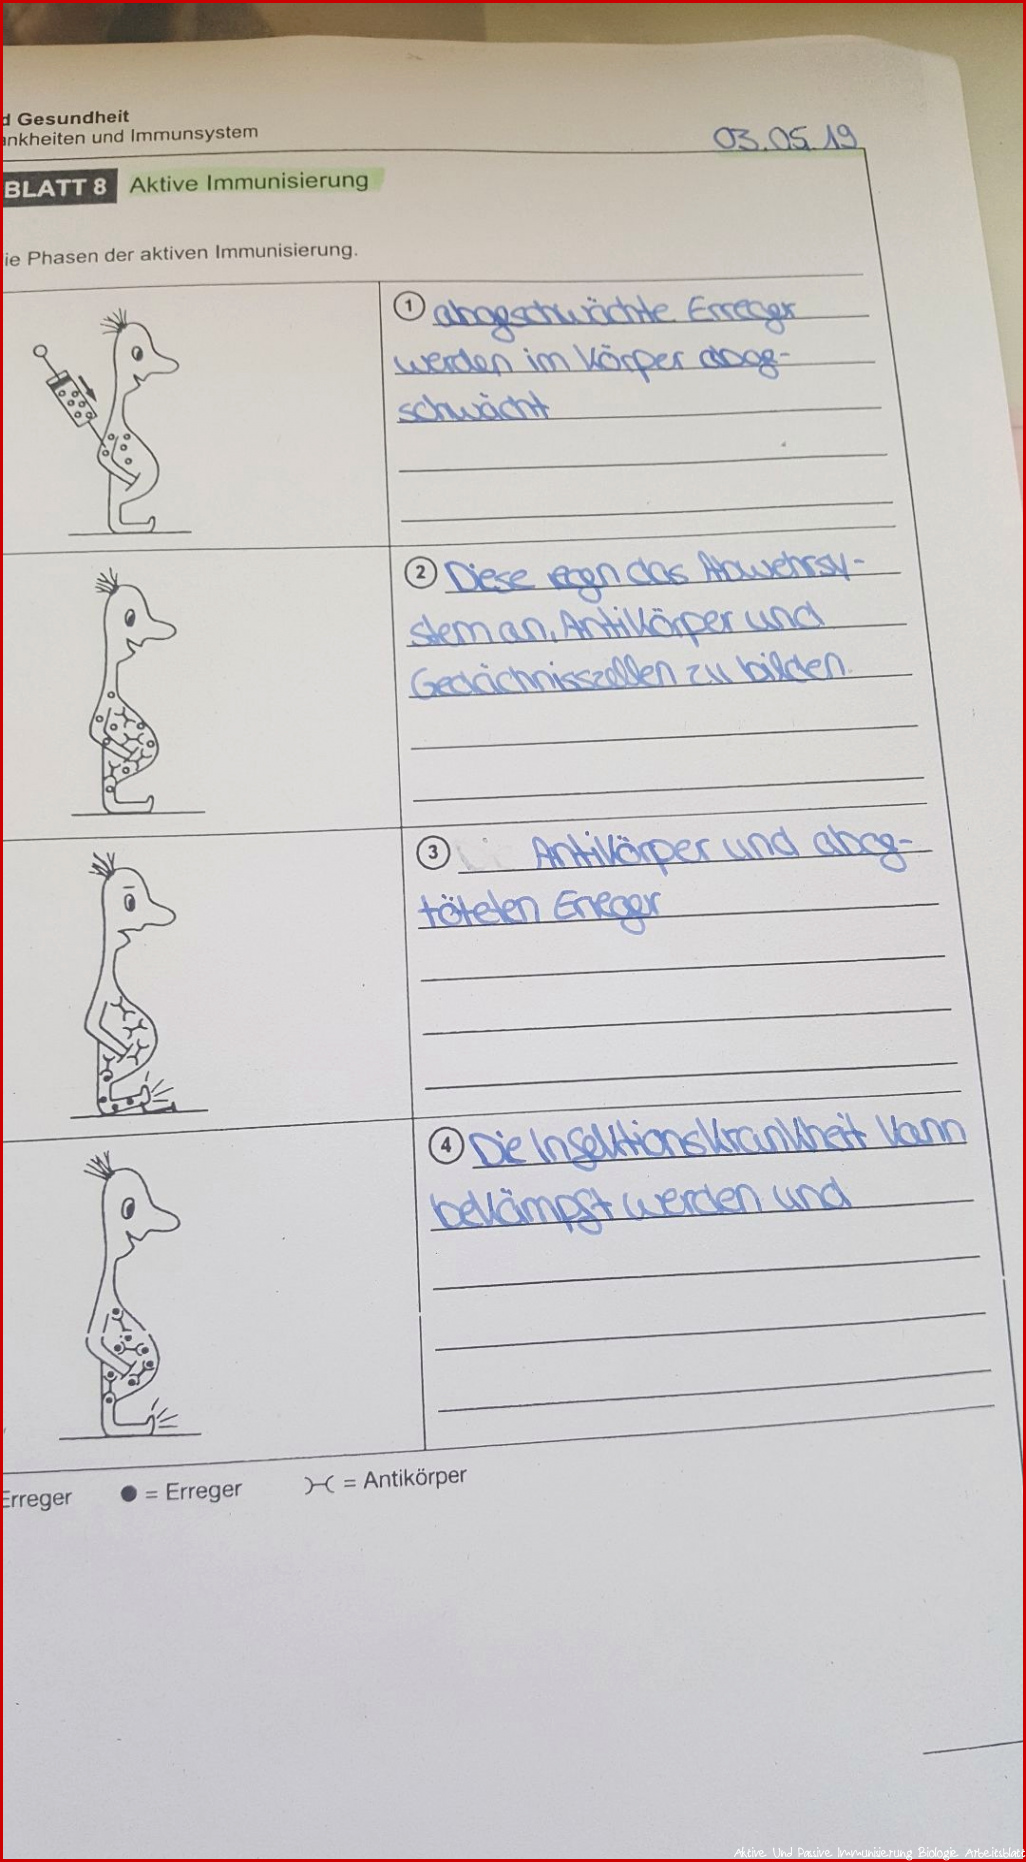 d Gesundheit
ankheiten und Immunsystem
03.05.19
BLATT 8 Aktive Immunisierung
ie Phasen der aktiven Immunisierung.
1 abgeschwächte Erreger
werden im Körper abge-
schwächt
2 Diese regn das Abwehrsy-
stem an, Antikörper und
Gedächniszellen zu bilden.
3 Antikörper und abge-
töteten Erreger
4 Die Infektionskrankheit kann
bekämpft werden und
Erreger ● = Erreger = Antikörper
Aktive Und Passive Immunisierung Biologie Arbeitsblatt